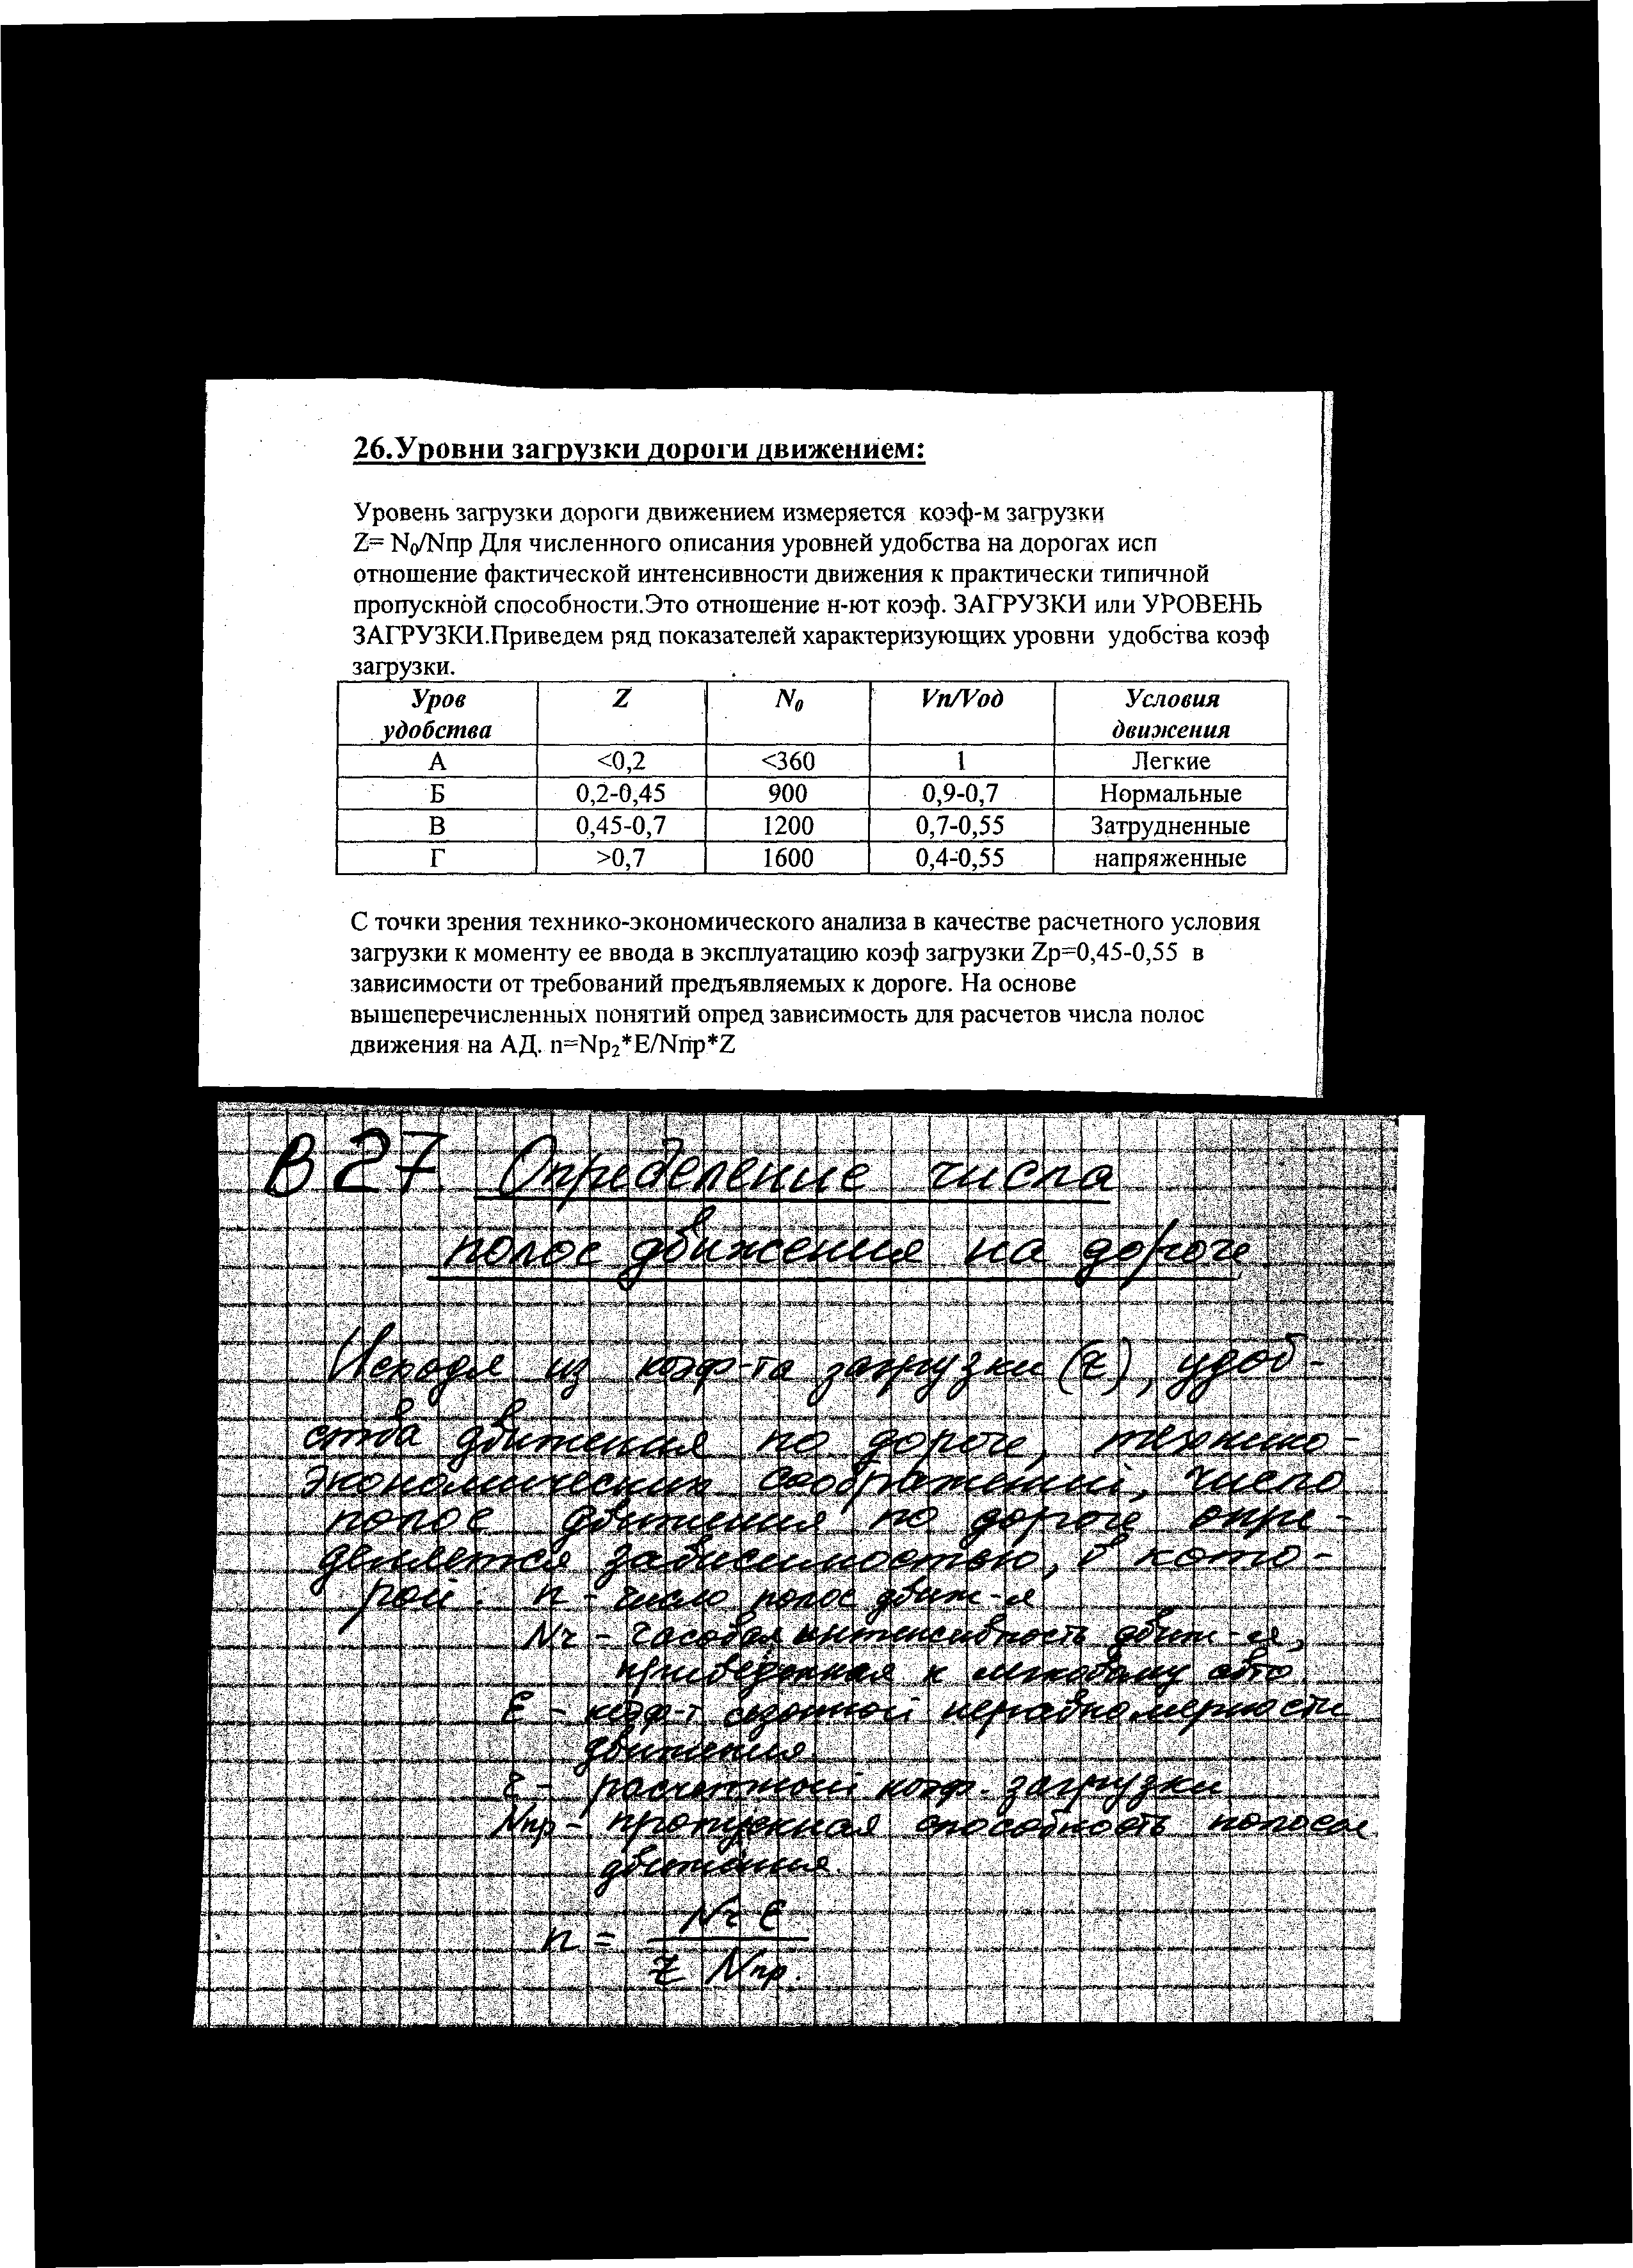 26.Уровни загрузки дороги движением:
Уровень загрузки дороги движением измеряется коэф-м загрузки
Z= N₀/Nпр Для численного описания уровней удобства на дорогах исп
отношение фактической интенсивности движения к практически типичной
пропускной способности.Это отношение н-ют коэф. ЗАГРУЗКИ или УРОВЕНЬ
ЗАГРУЗКИ.Приведем ряд показателей характеризующих уровни удобства коэф
загрузки.
Уров удобства Z N₀ Vп/Vод Условия движения
А <0,2 <360 1 Легкие
Б 0,2-0,45 900 0,9-0,7 Нормальные
В 0,45-0,7 1200 0,7-0,55 Затрудненные
Г >0,7 1600 0,4-0,55 напряженные
С точки зрения технико-экономического анализа в качестве расчетного условия
загрузки к моменту ее ввода в эксплуатацию коэф загрузки Zр=0,45-0,55 в
зависимости от требований предъявляемых к дороге. На основе
вышеперечисленных понятий опред зависимость для расчетов числа полос
движения на АД. n=Nр₂*E/Nпр*Z
В 27. Определение числа
полос движения на дороге
Исходя из коэф-та загрузки (z), удоб-
ства движения по дороге, технико-
экономических соображений, число
полос движения по дороге опре-
деляется зависимостью, в кото-
рой: n - число полос движ-я
Nч - часовая интенсивность движ-ия,
приведённая к легковому авто.
Е - коэф-т сезонной неравномерности
движения.
z - расчетный коэф. загрузки
Nпр - пропускная способность полосы
движения.
n = Nч Е / z Nпр.